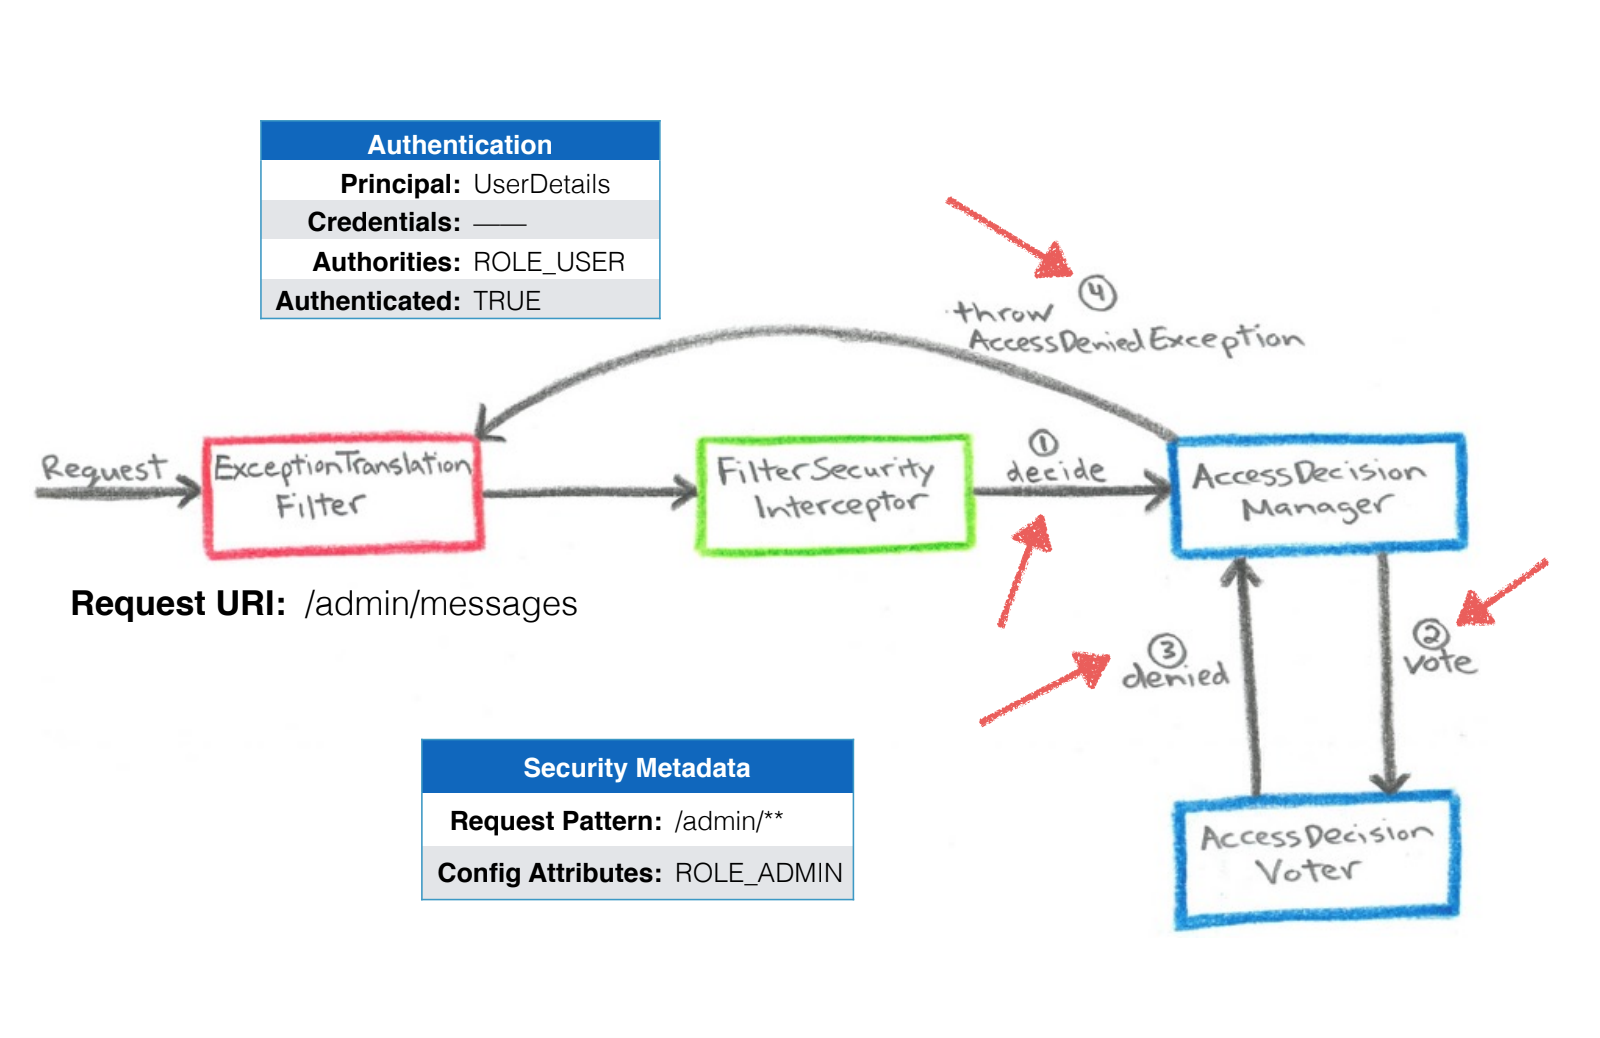 Authentication
Principal: UserDetails
Credentials: ——
Authorities: ROLE_USER
Authenticated: TRUE
④
throw
AccessDeniedException
Request
ExceptionTranslation
Filter
FilterSecurity
Interceptor
①
decide
AccessDecision
Manager
Request URI: /admin/messages
③
denied
②
vote
Security Metadata
Request Pattern: /admin/**
Config Attributes: ROLE_ADMIN
AccessDecision
Voter